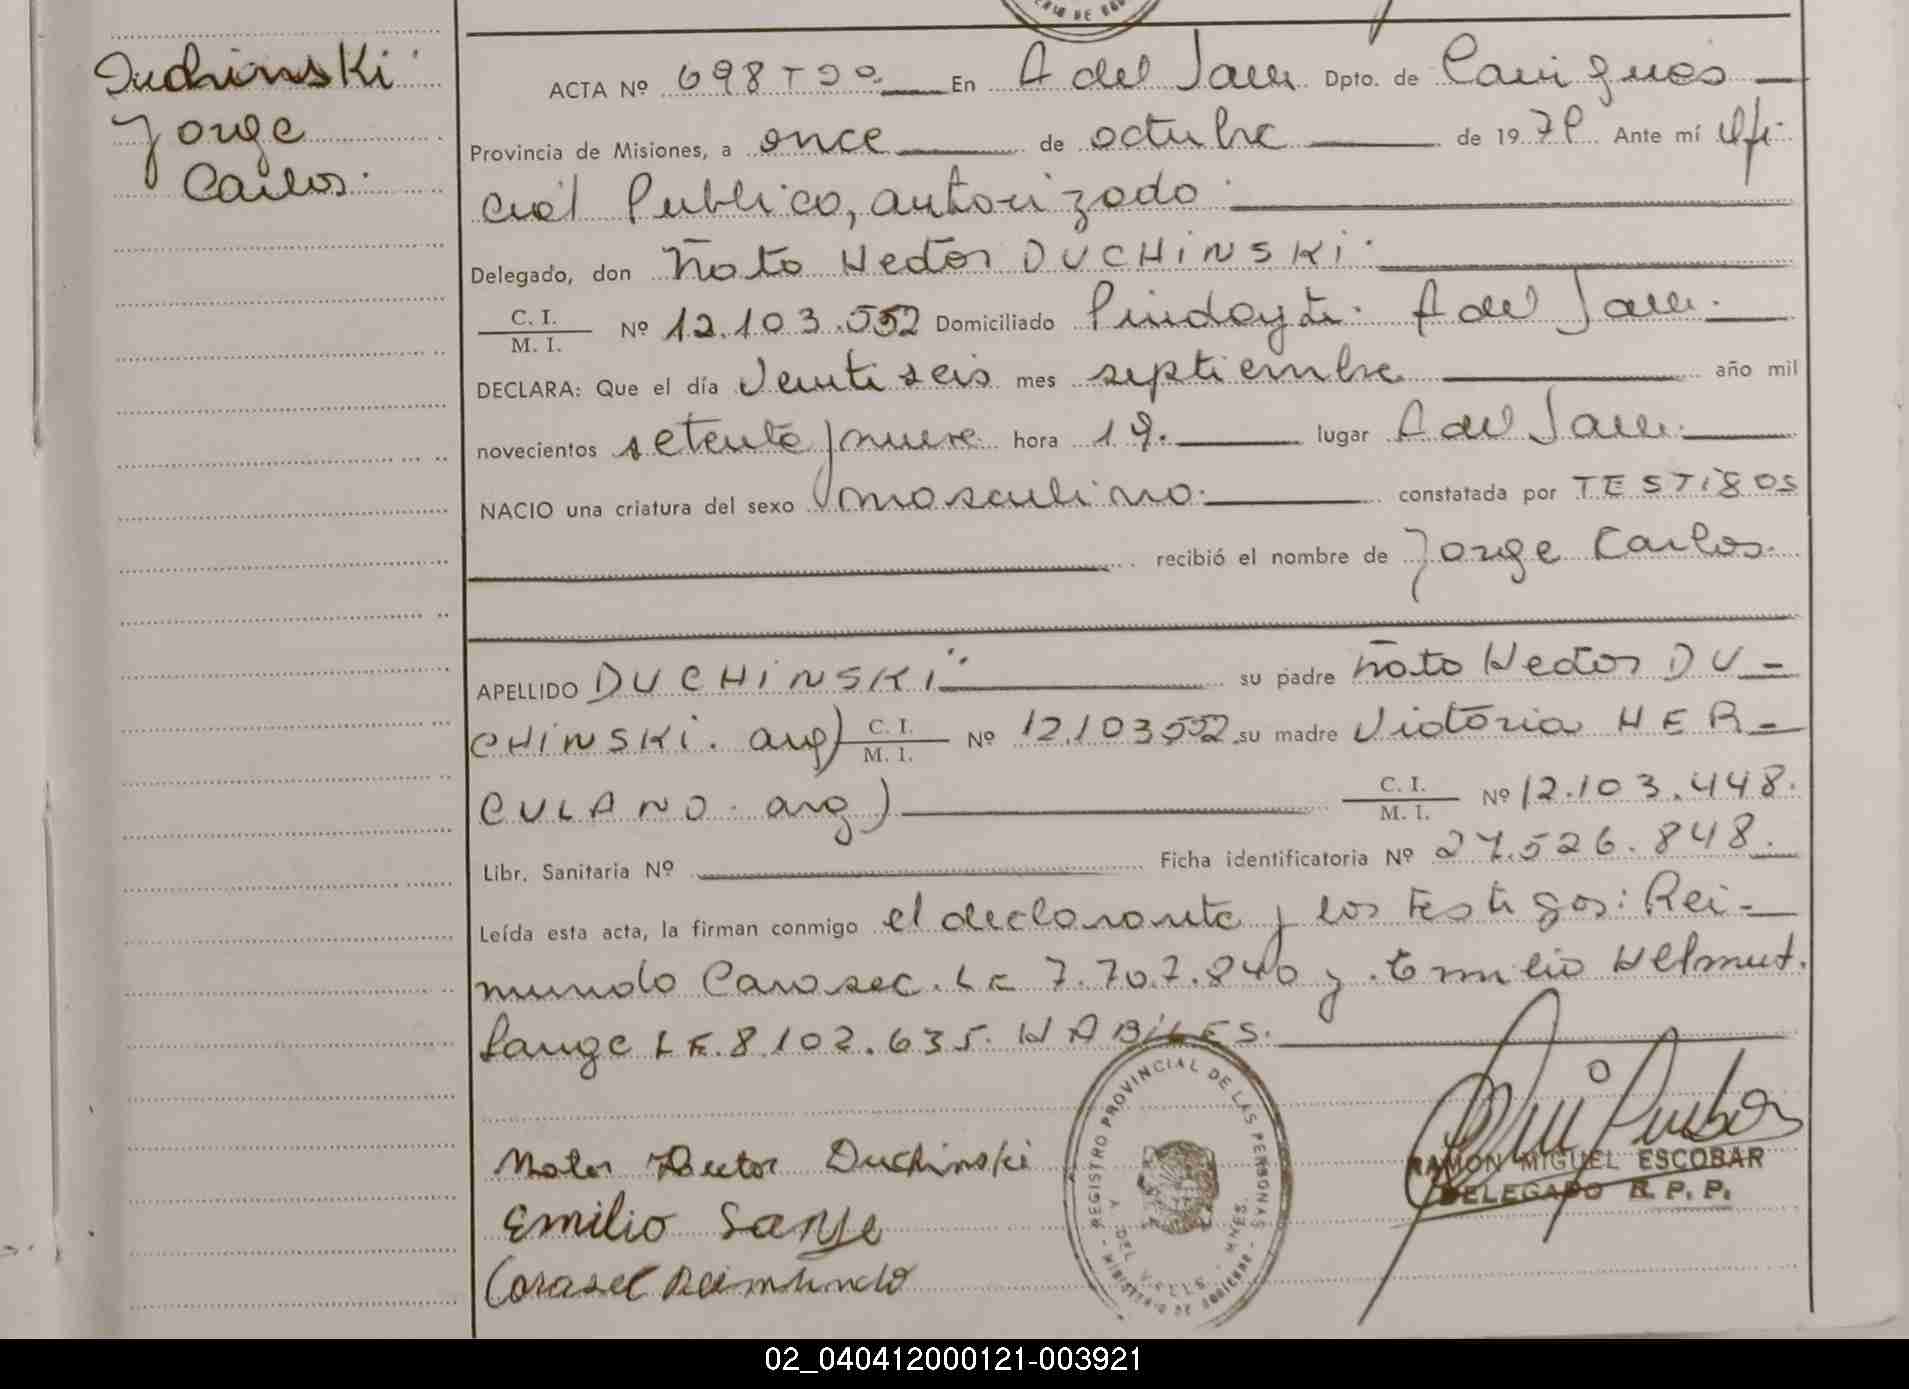 Duchinski
Jorge
Carlos.
ACTA Nº 698 Tº 9º En A del Valle Dpto. de Cainguás
Provincia de Misiones, a once de octubre de 1979 Ante mí Ofi-
cial Publico, autorizado
Delegado, don Ñato Hector DUCHINSKI.
C. I.
M. I. Nº 12.103.552 Domiciliado Pindayti. A del Valle.
DECLARA: Que el día Veintiseis mes septiembre año mil
novecientos setenta y nueve hora 19. lugar A del Valle.
NACIO una criatura del sexo masculino. constatada por TESTiGOS
recibió el nombre de Jorge Carlos.
APELLIDO DUCHiNSKi su padre Ñato Hector DU-
CHiNSKi. arg) C. I. M. I. Nº 12.103552 su madre Victoria HER-
CULANO. arg) C. I. M. I. Nº 12.103.448.
Libr. Sanitaria Nº Ficha identificatoria Nº 27.526.848.
Leída esta acta, la firman conmigo el declarante y los testigos: Rei-
mundo Carosec. LE 7.707.840 y Emilio Helmut.
Lange LE. 8.102.635. HABiLES.
Hector Duchinski
Emilio Lange
Reimundo
REGISTRO PROVINCIAL DE LAS PERSONAS
MINISTERIO DE GOBIERNO
RAMON MIGUEL ESCOBAR
DELEGADO R. P. P.
02_040412000121-003921